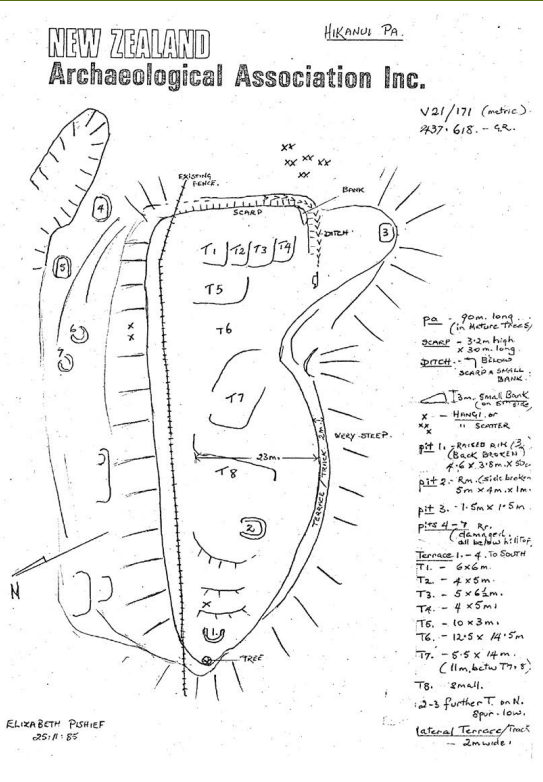 HIKANUI PA.
NEW ZEALAND
Archaeological Association Inc.
V21/171 (metric)
437.618. - G.R.
EXISTING
FENCE.
BANK
SCARP
DITCH.
T1 T2 T3 T4
T5
T6
T7
T8
23m
TERRACE / TRACK 2m.
VERY STEEP.
1
2
3
4
5
6
7
TREE
N
pa - 90m. long
(in Mature Trees)
SCARP - 3.2m high
x 30m. long.
DITCH. - BELOW
SCARP & SMALL
BANK.
3m. Small Bank
x - HANGI. or
xx " SCATTER
pit 1. - RAISED RIM
(BACK BROKEN)
4.6 x 3.8m. x
pit 2 - Rm. (side broken
5m x 4m. x 1m.
pit 3. - 1.5m x 1.5m.
pits 4-7 Rr.
(damaged.
all below hilltop
Terrace 1. - 4. To SOUTH
T1. - 6x6m.
T2. - 4x5m.
T3. - 5x6½m.
T4. - 4x5m.
T5. - 10x3m.
T6. - 12.5 x 14.5m
T7. - 5.5 x 14m.
(11m. betw T7, 8)
T8. small.
2-3 further T. on N.
spur - low.
lateral Terrace/Track
- 2m wide.
ELIZABETH PISHIEF
25:11:85